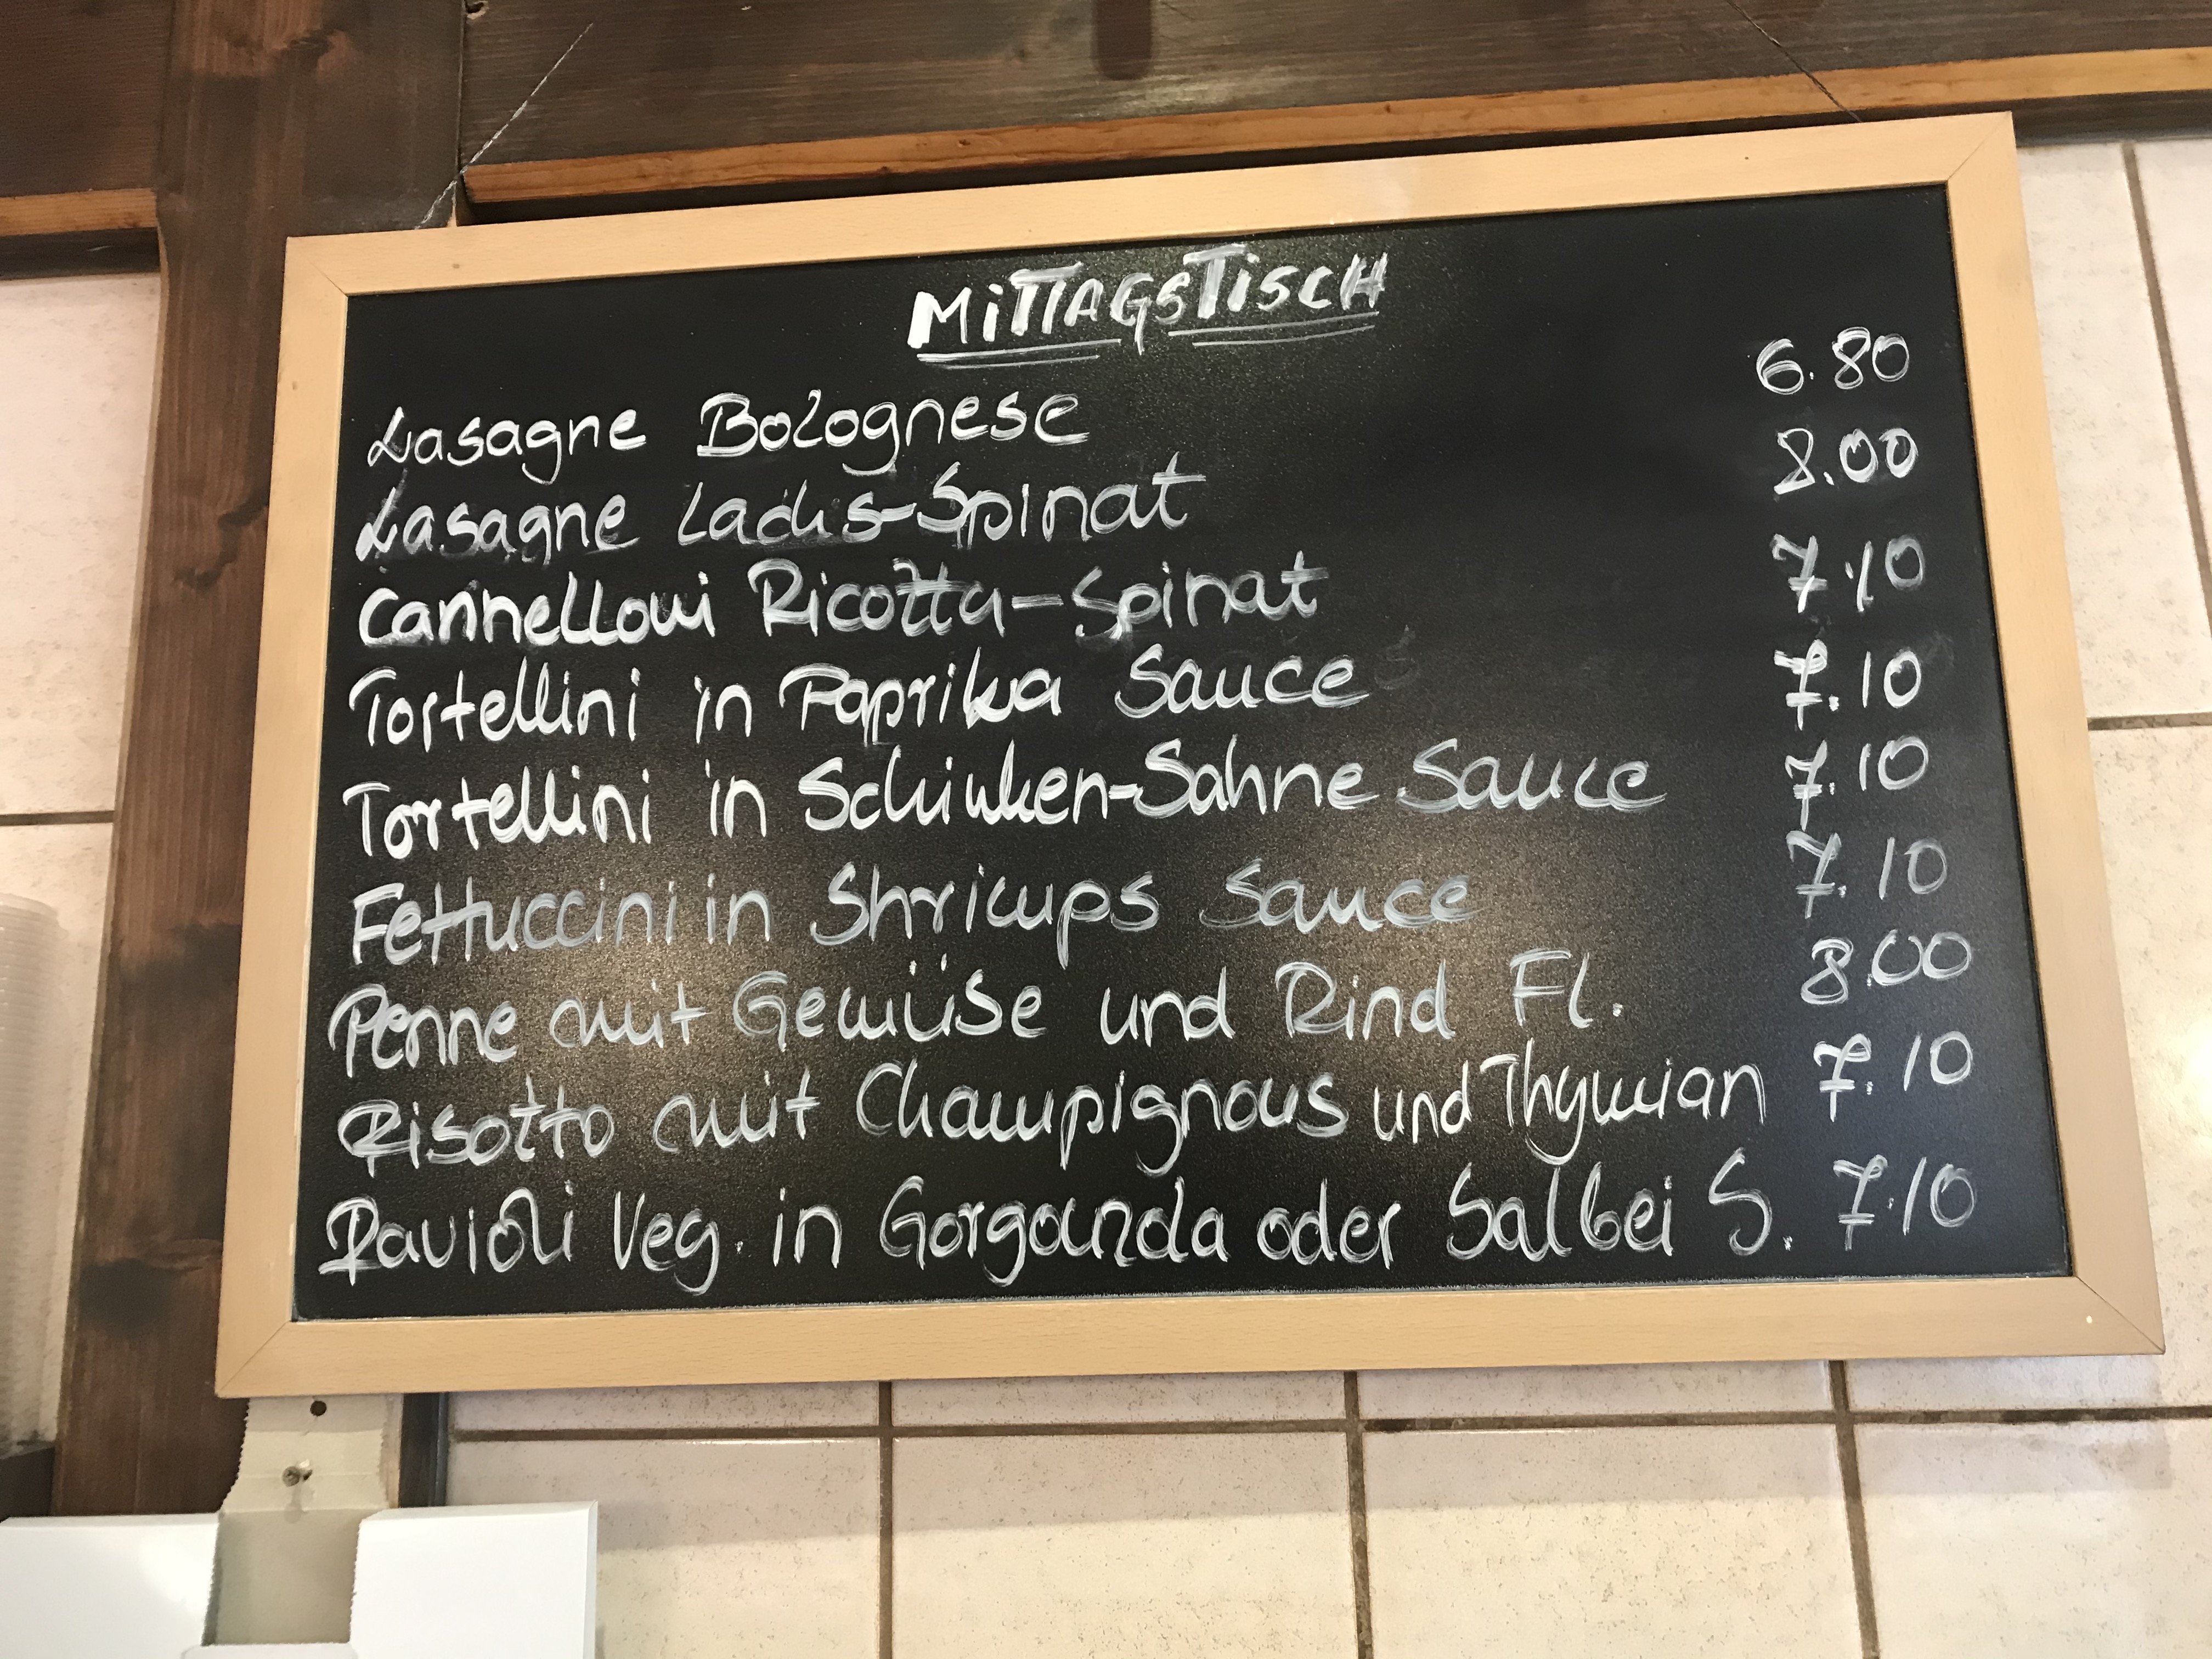 MiTTAGSTiSCH
Lasagne Bolognese 6.80
Lasagne Lachs-Spinat 8.00
Cannelloni Ricotta-Spinat 7.10
Tortellini in Paprika Sauce 7.10
Tortellini in Schinken-Sahne Sauce 7.10
Fettuccini in Shrimps Sauce 7.10
Penne mit Gemüse und Rind Fl. 8.00
Risotto mit Champignons und Thymian 7.10
Ravioli Veg. in Gorgonzola oder Salbei S. 7.10